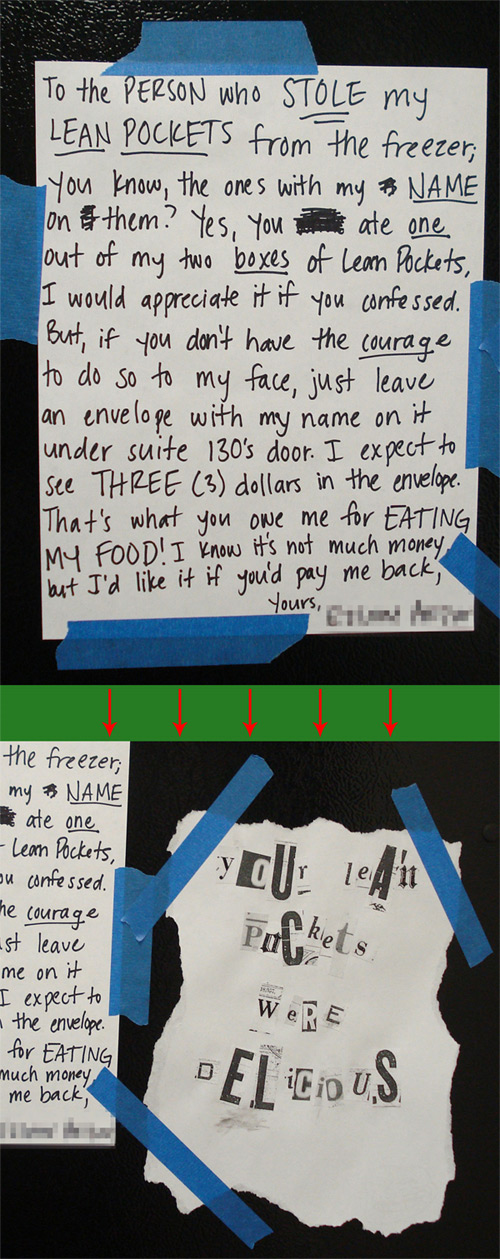 To the PERSON who STOLE my
LEAN POCKETS from the freezer;
you know, the ones with my NAME
on them? Yes, you ate one
out of my two boxes of Lean Pockets,
I would appreciate it if you confessed.
But, if you don't have the courage
to do so to my face, just leave
an envelope with my name on it
under suite 130's door. I expect to
see THREE (3) dollars in the envelope.
That's what you owe me for EATING
MY FOOD! I know it's not much money,
but I'd like it if you'd pay me back,
Yours,
the freezer;
my NAME
ate one
Lean Pockets,
ou confessed.
he courage
st leave
me on it
I expect to
the envelope.
for EATING
much money,
me back,
yOUr leAn
PoCkets
WeRE
DELiCiOUS